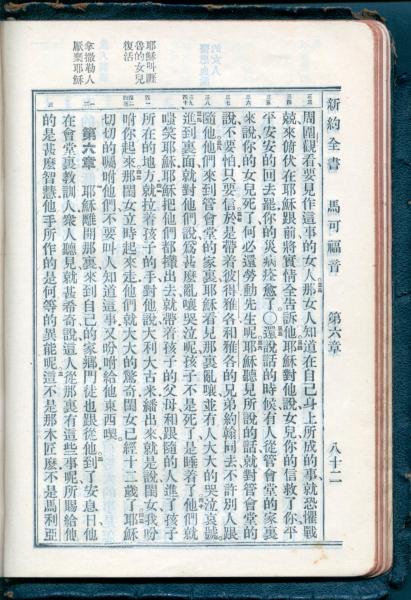 新約全書　馬可福音　第六章　八十二
周圍觀看要見作這事的女人那女人知道在自己身上所成的事就恐懼戰
兢來俯伏在耶穌跟前將實情全告訴他耶穌對他說女兒你的信救了你平
平安安的回去罷你的災病痊愈了○還說話的時候有人從管會堂的家裏
來說你的女兒死了何必還勞動先生呢耶穌聽見所說的話就對管會堂的
說不要怕只要信於是帶着彼得雅各和雅各的兄弟約翰同去不許別人跟
隨他他們來到管會堂的家裏耶穌看見那裏亂嚷並有人大大的哭泣哀號
進到裏面就對他們說爲甚麼亂嚷哭泣呢孩子不是死了是睡着了他們就
嗤笑耶穌耶穌把他們都攆出去就帶着孩子的父母和跟隨的人進了孩子
所在的地方就拉着孩子的手對他說大利大古米繙出來就是說閨女我吩
咐你起來那閨女立時起來走他們就大大的驚奇閨女已經十二歲了耶穌
切切的囑咐他們不要叫人知道這事又吩咐給他東西喫
第六章　耶穌離開那裏來到自己的家鄉門徒也跟從他到了安息日他
在會堂裏教訓人衆人聽見就甚希奇說這人從那裏有這些事呢所賜給他
的是甚麼智慧他手所作的是何等的異能呢這不是那木匠麼不是馬利亞
耶穌叫睚
魯的女兒
復活
拿撒勒人
厭棄耶穌